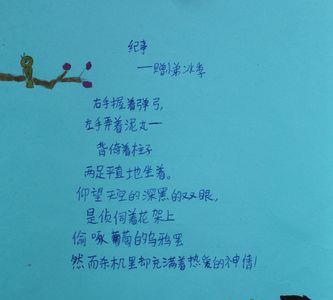 纪事
——赠小弟冰季
右手握着弹弓，
左手弄着泥丸——
背倚着柱子
两足平直地坐着。
仰望天空的深黑的双眼，
是侦伺着花架上
偷啄葡萄的乌鸦罢
然而杀机里却充满着热爱的神情！